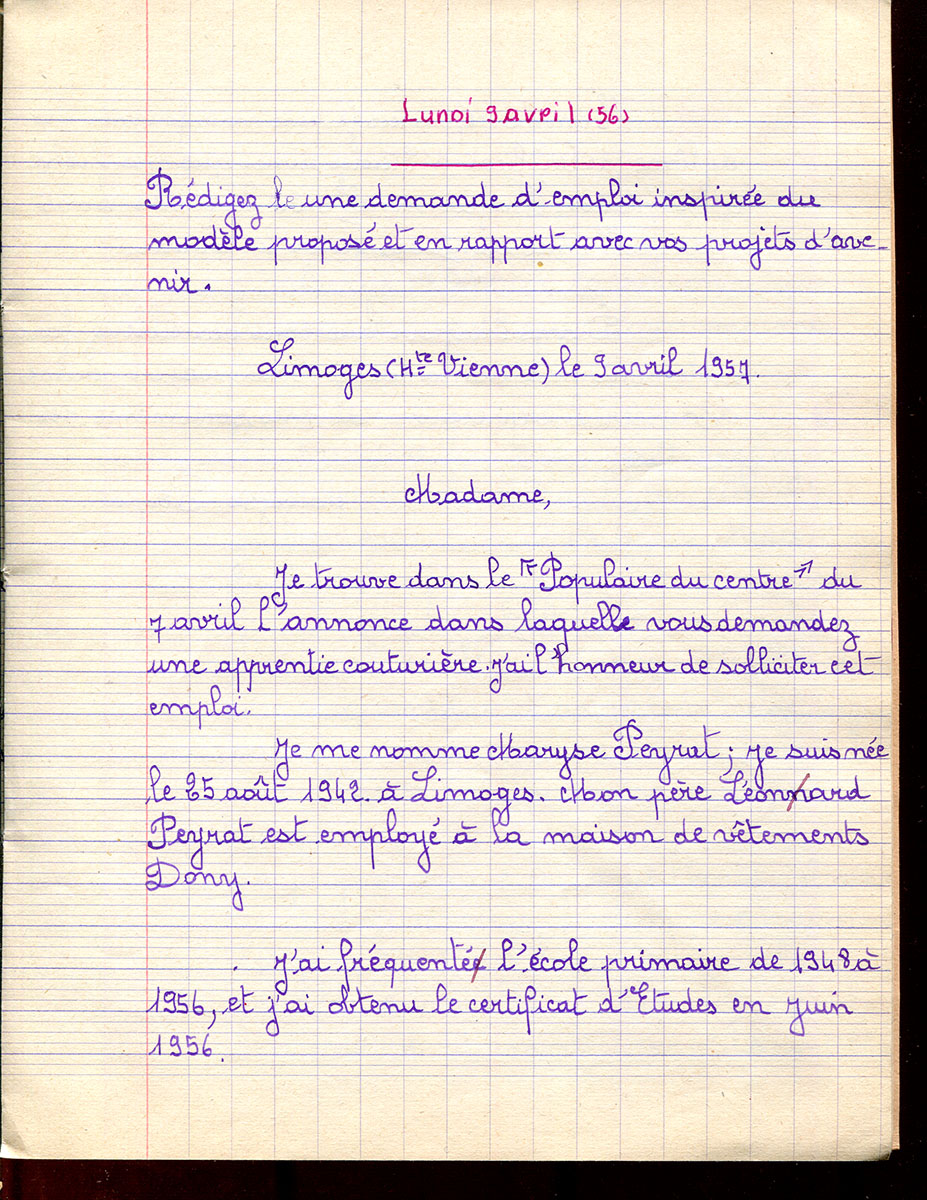 Lundi 9 avril (56)
Rédigez le une demande d'emploi inspirée du
modèle proposé et en rapport avec vos projets d'ave-
nir.
Limoges (Hte Vienne) le 9 avril 1957.
Madame,
Je trouve dans le "Populaire du centre" du
7 avril l'annonce dans laquelle vous demandez
une apprentie couturière. j'ai l'honneur de solliciter cet
emploi.
Je me nomme Maryse Peyrat ; je suis née
le 25 août 1942. à Limoges. Mon père Léonnard
Peyrat est employé à la maison de vêtements
Dony.
J'ai fréquentée l'école primaire de 1948 à
1956, et j'ai obtenu le certificat d'Etudes en juin
1956.